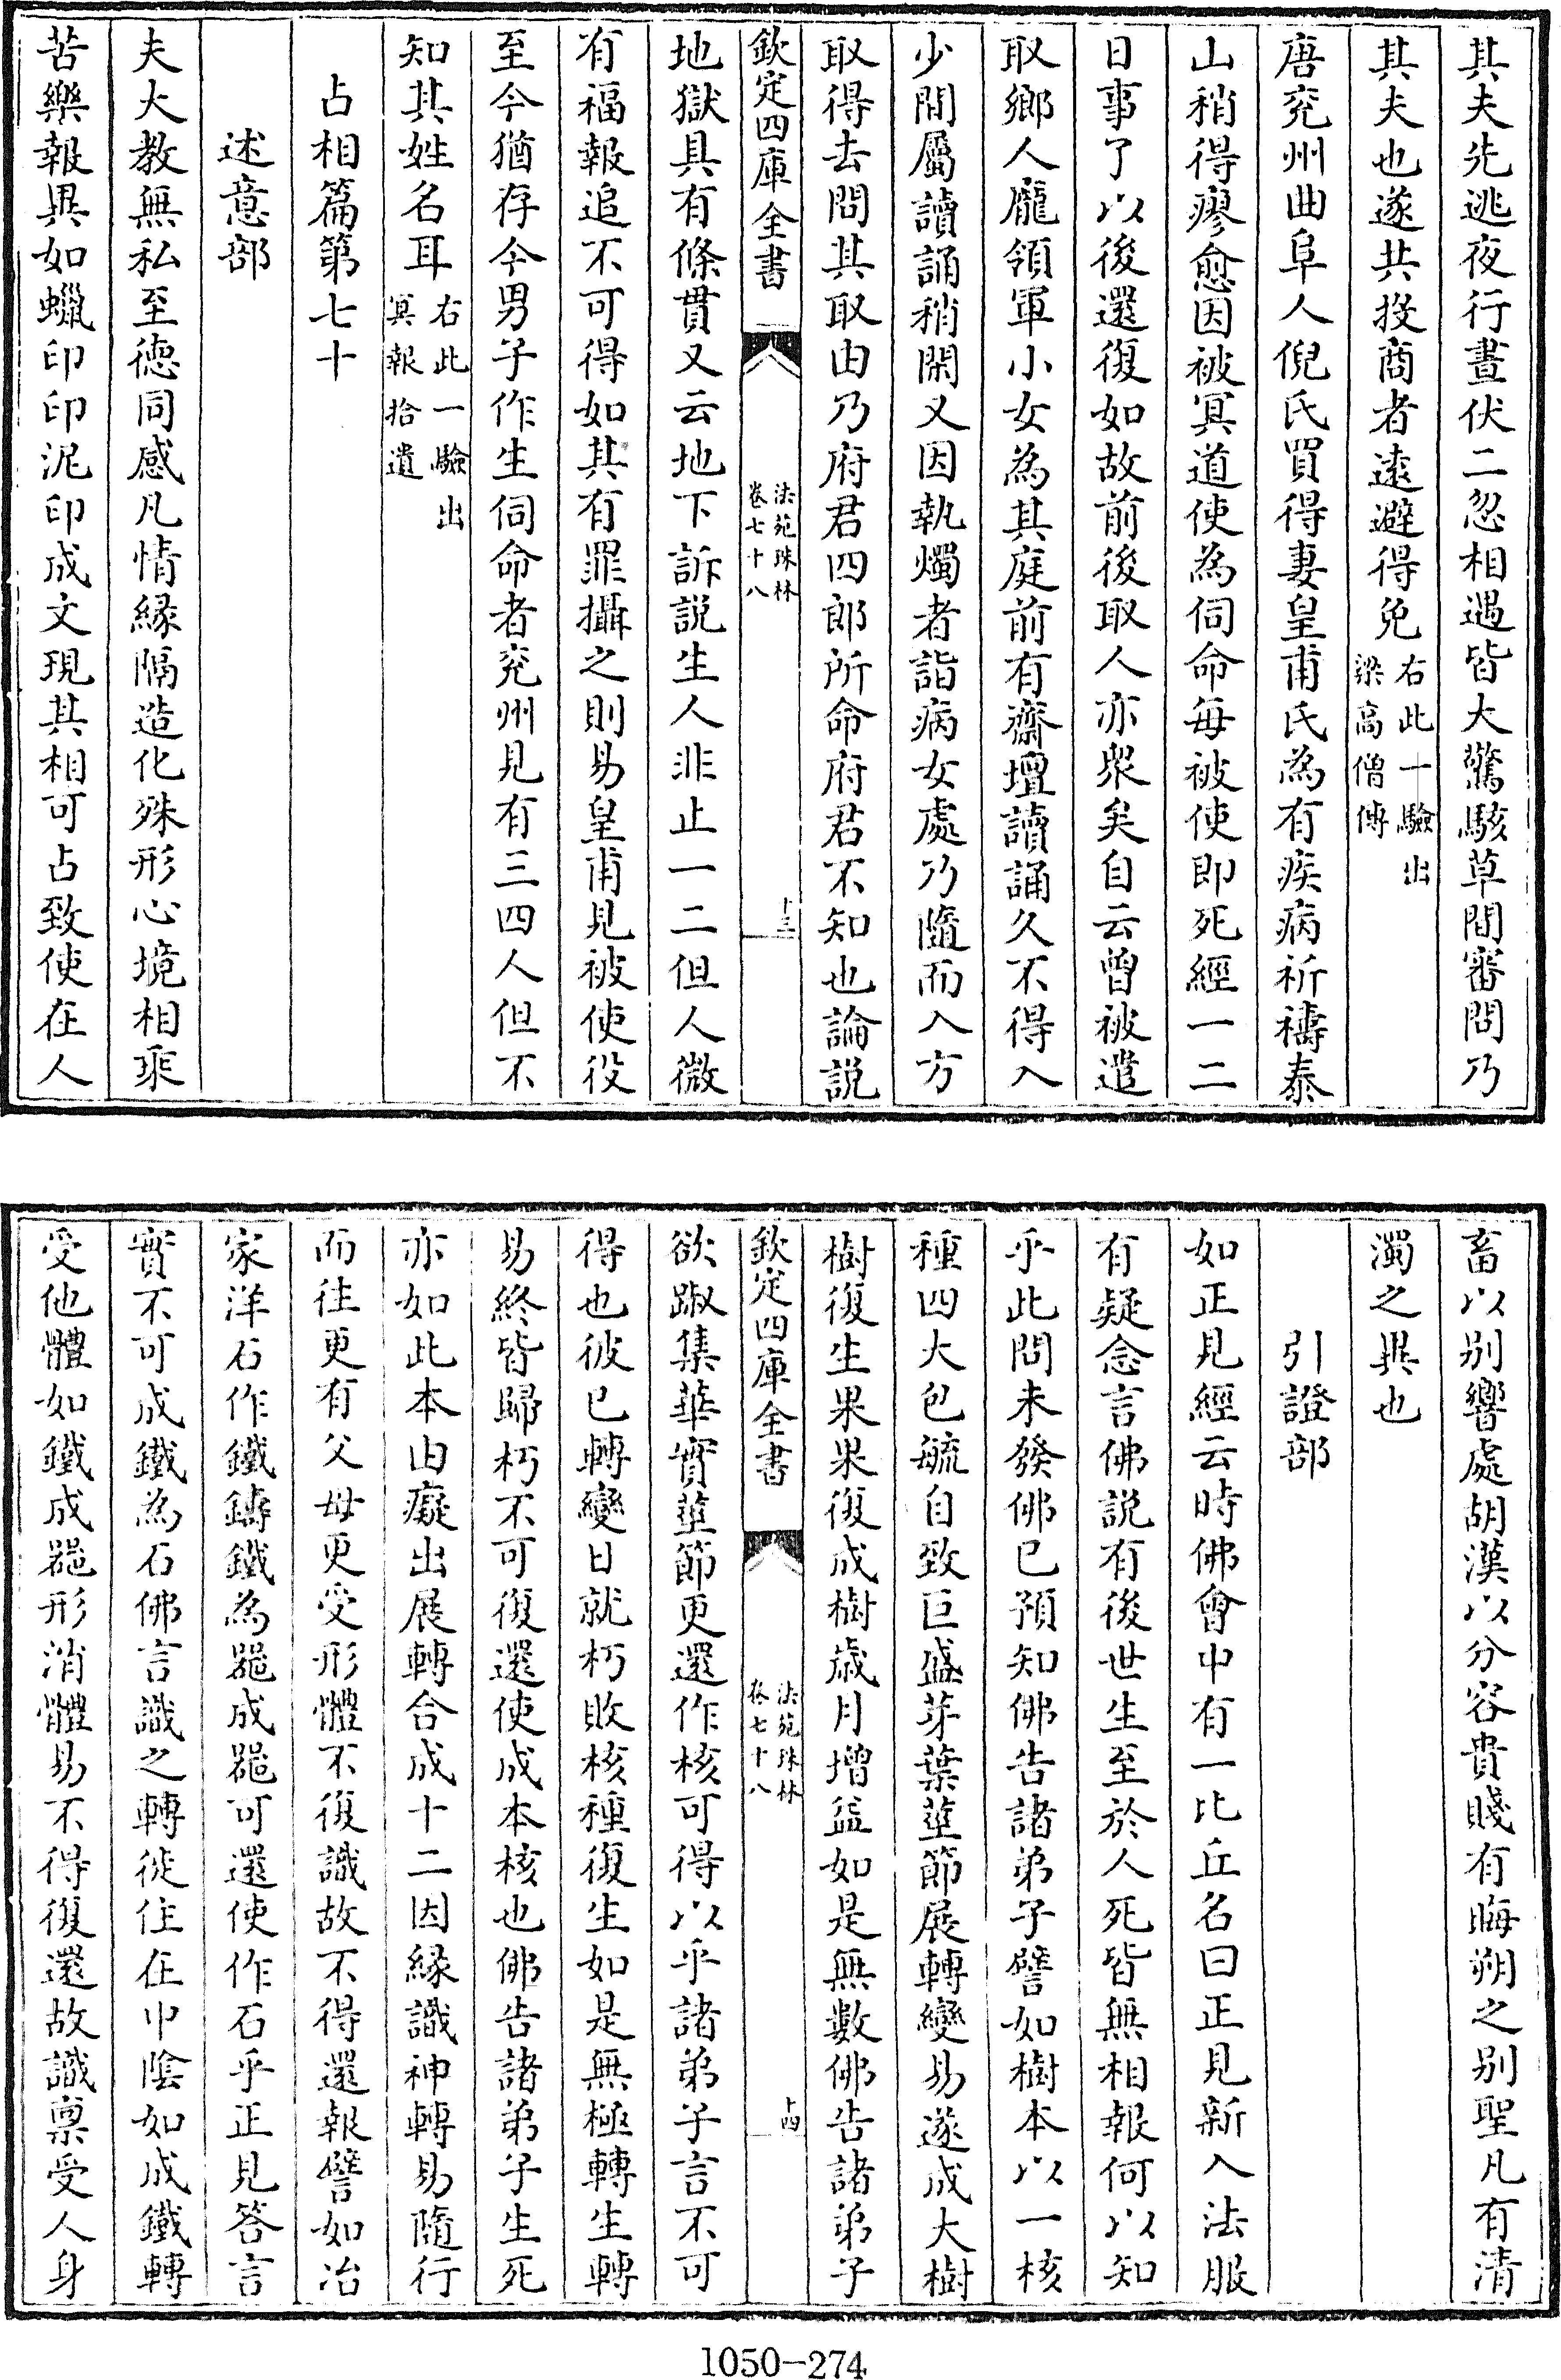 其夫先逃夜行晝伏二忽相遇皆大驚駭草間審問乃
其夫也遂共投商者遠避得免右此一驗出梁高僧傳
唐兖州曲阜人倪氏買得妻皇甫氏為有疾病祈禱泰
山稍得瘳愈因被冥道使為伺命每被使即死經一二
日事了以後還復如故前後取人亦衆矣自云曾被遣
取鄉人龐領軍小女為其庭前有齋壇讀誦久不得入
少間屬讀誦稍閑又因執燭者詣病女處乃隨而入方
取得去問其取由乃府君四郎所命府君不知也論説
欽定四庫全書
法苑珠林
卷七十八
十三
地獄具有條貫又云地下訴説生人非止一二但人微
有福報追不可得如其有罪攝之則易皇甫見被使役
至今猶存今男子作生伺命者兖州見有三四人但不
知其姓名耳右此一驗出冥報拾遺
占相篇第七十
述意部
夫大教無私至德同感凡情縁隔造化殊形心境相乘
苦樂報異如蠟印印泥印成文現其相可占致使在人
畜以别響處胡漢以分容貴賤有晦朔之别聖凡有清
濁之異也
引證部
如正見經云時佛會中有一比丘名曰正見新入法服
有疑念言佛説有後世生至於人死皆無相報何以知
乎此問未發佛已預知佛告諸弟子譬如樹本以一核
種四大包毓自致巨盛芽葉莖節展轉變易遂成大樹
樹復生果果復成樹歲月增益如是無數佛告諸弟子
欽定四庫全書
法苑珠林
卷七十八
十四
欲踧集華實莖節更還作核可得以乎諸弟子言不可
得也彼已轉變日就朽敗核種復生如是無極轉生轉
易終皆歸朽不可復還使成本核也佛告諸弟子生死
亦如此本由癡出展轉合成十二因縁識神轉易隨行
而往更有父母更受形體不復識故不得還報譬如冶
家洋石作鐵鑄鐵為噐成噐可還使作石乎正見答言
實不可成鐵為石佛言識之轉徙住在中隂如成鐵轉
受他體如鐵成噐形消體易不得復還故識稟受人身
1050-274